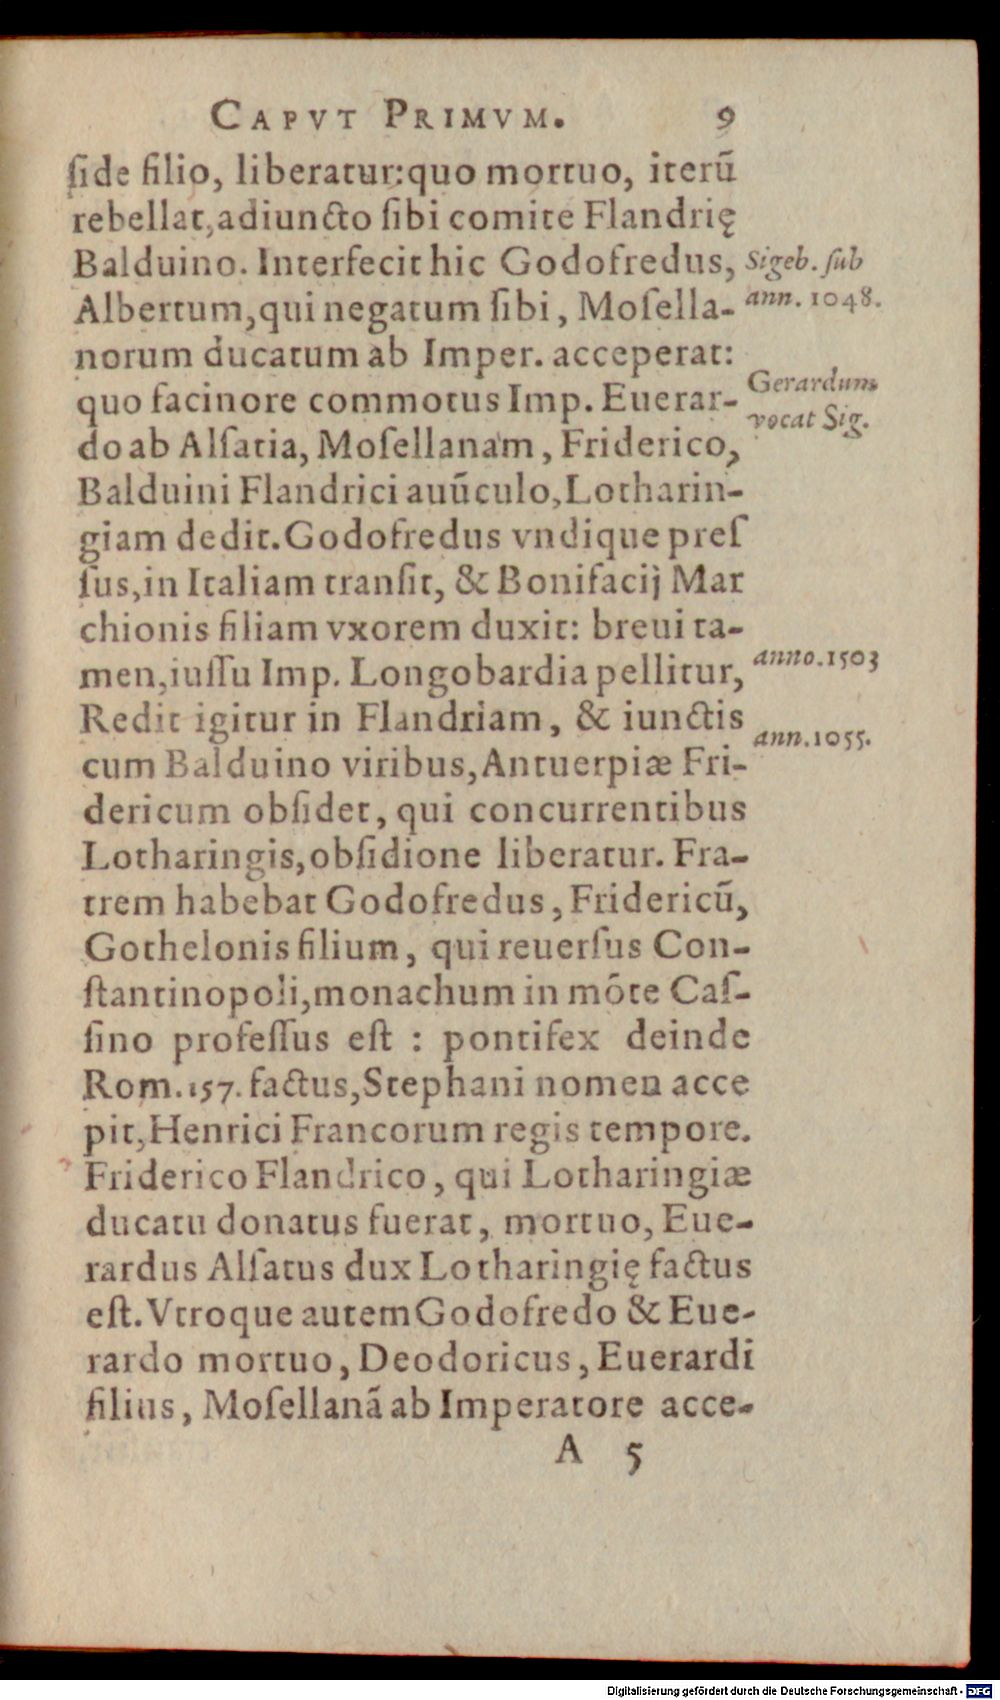 CAPVT PRIMVM. 9
ſide filio, liberatur: quo mortuo, iterũ
rebellat, adiuncto ſibi comite Flandrię
Balduino. Interfecit hic Godofredus,
Sigeb. ſub
Albertum, qui negatum ſibi, Moſella-
ann. 1048.
norum ducatum ab Imper. acceperat:
Gerardum
quo facinore commotus Imp. Euerar-
vocat Sig.
do ab Alſatia, Moſellanam, Friderico,
Balduini Flandrici auũculo, Lotharin-
giam dedit. Godofredus vndique preſ
ſus, in Italiam tranſit, & Bonifacij Mar
chionis filiam vxorem duxit: breui ta-
men, iuſſu Imp. Longobardia pellitur,
anno. 1503
Redit igitur in Flandriam, & iunctis
ann. 1055.
cum Balduino viribus, Antuerpiæ Fri-
dericum obſidet, qui concurrentibus
Lotharingis, obſidione liberatur. Fra-
trem habebat Godofredus, Fridericũ,
Gothelonis filium, qui reuerſus Con-
ſtantinopoli, monachum in mõte Caſ-
ſino profeſſus eſt : pontifex deinde
Rom. 157. factus, Stephani nomen acce
pit, Henrici Francorum regis tempore.
Friderico Flandrico, qui Lotharingiæ
ducatu donatus fuerat, mortuo, Eue-
rardus Alſatus dux Lotharingię factus
eſt. Vtroque autem Godofredo & Eue-
rardo mortuo, Deodoricus, Euerardi
filius, Moſellanã ab Imperatore acce-
A 5
Digitalisierung gefördert durch die Deutsche Forschungsgemeinschaft - DFG